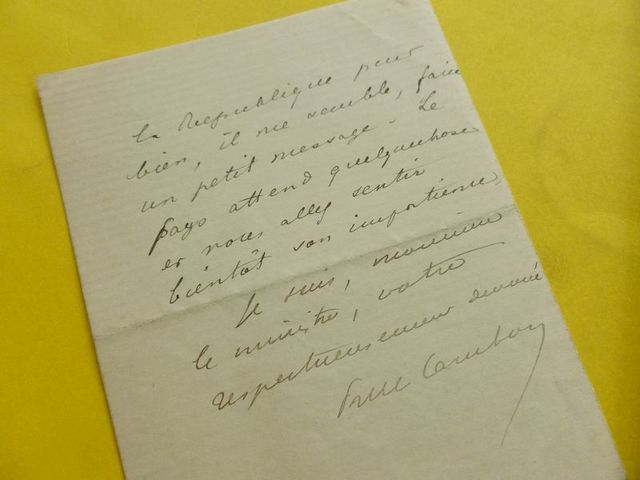 la République peut
bien, il me semble, faire
un petit message. Le
pays attend quelquechose
et vous allez sentir
bientôt son impatience.
Je suis, monsieur
le ministre, votre
respectueusement dévoué
Cambon